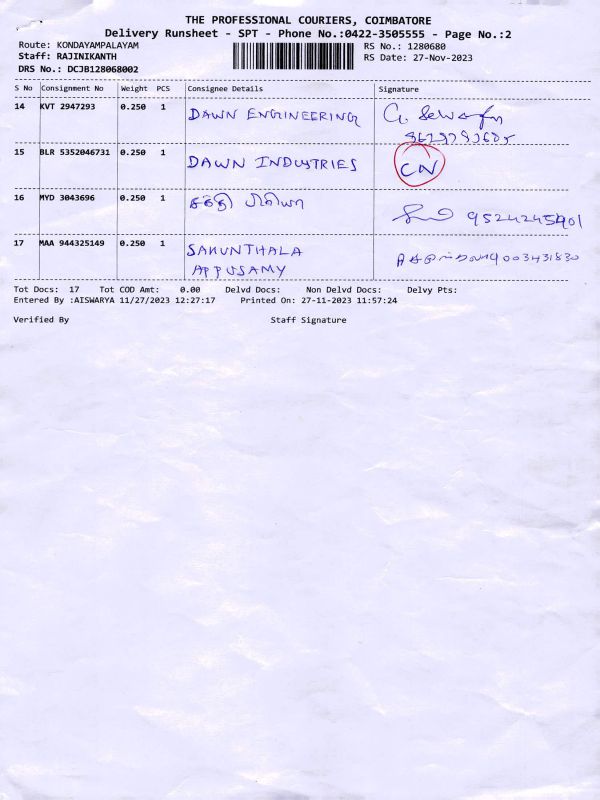 THE PROFESSIONAL COURIERS, COIMBATORE
Delivery Runsheet - SPT - Phone No.:0422-3505555 - Page No.:2
Route: KONDAYAMPALAYAM
RS No.: 1280680
Staff: RAJINIKANTH
RS Date: 27-Nov-2023
DRS No.: DCJB128068002
S No Consignment No Weight PCS Consignee Details Signature
14 KVT 2947293 0.250 1 DAWN ENGINEERING
15 BLR 5352046731 0.250 1 DAWN INDUSTRIES CN
16 MYD 3043696 0.250 1 சக்தி பிரியா 9524245901
17 MAA 944325149 0.250 1 SAKUNTHALA 9003431830
APPUSAMY
Tot Docs: 17 Tot COD Amt: 0.00 Delvd Docs: Non Delvd Docs: Delvy Pts:
Entered By :AISWARYA 11/27/2023 12:27:17 Printed On: 27-11-2023 11:57:24
Verified By Staff Signature